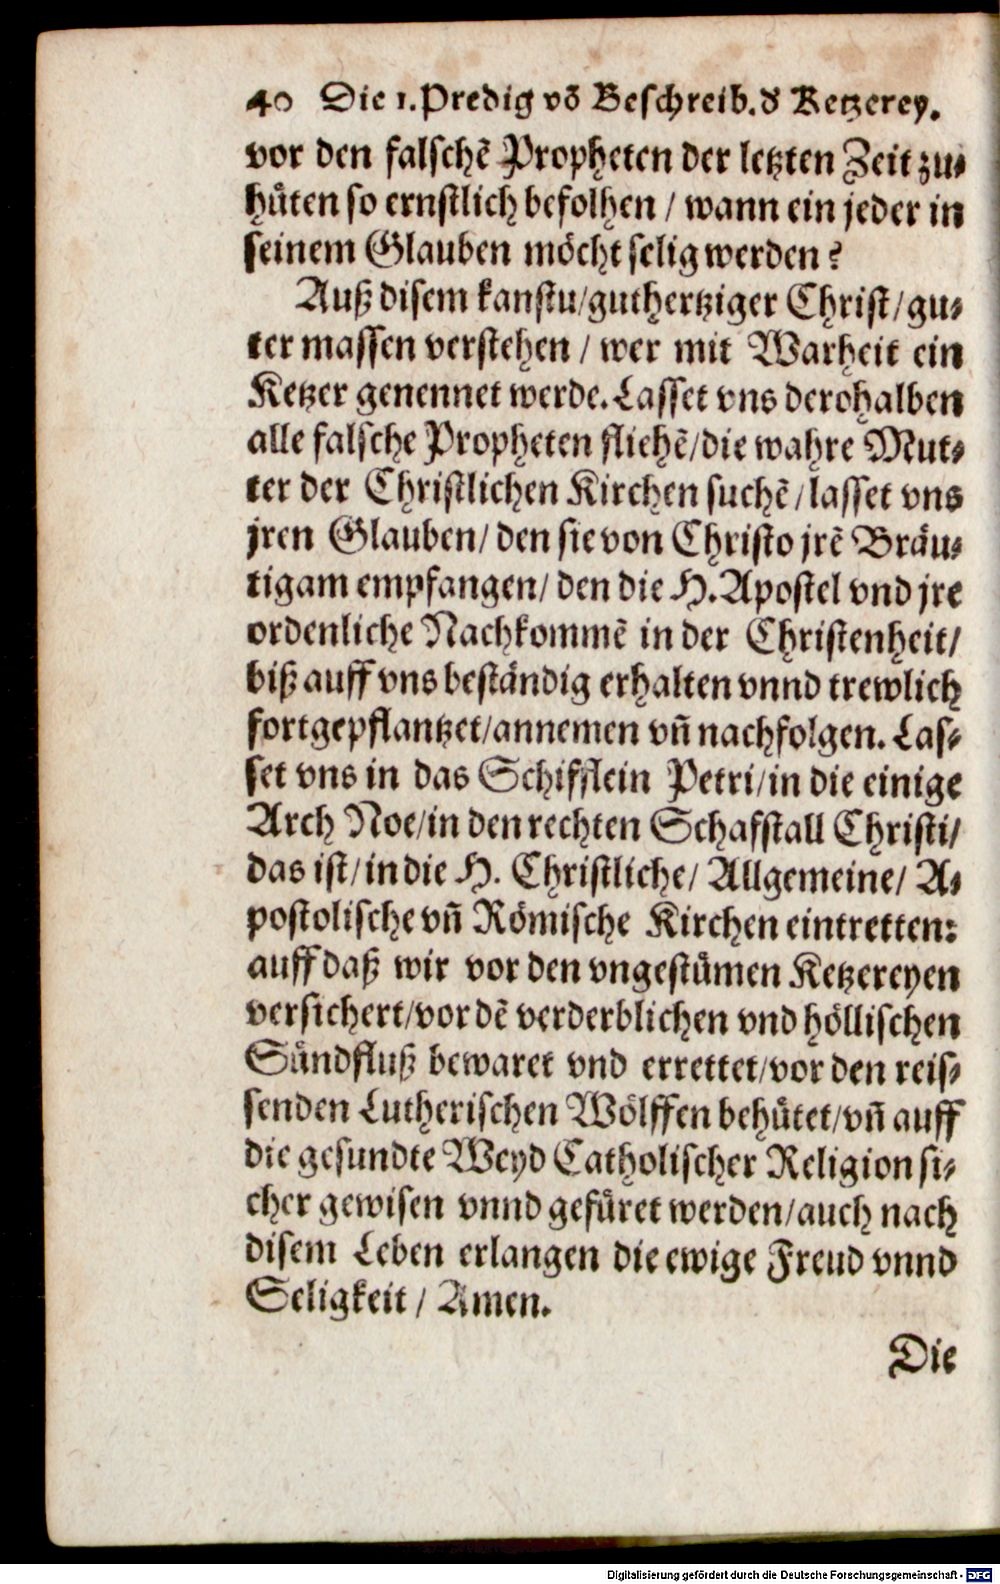 40 Die 1. Predig võ Beschreib. d̕ Ketzerey.
vor den falschẽ Propheten der letzten Zeit zu-
hůten so ernstlich befolhen / wann ein jeder in
seinem Glauben möcht selig werden?
Auß disem kanstu/guthertziger Christ/gu-
ter massen verstehen / wer mit Warheit ein
Ketzer genennet werde. Lasset vns derohalben
alle falsche Propheten fliehẽ/die wahre Mut-
ter der Christlichen Kirchen suchẽ/lasset vns
jren Glauben/den sie von Christo jrẽ Bräu-
tigam empfangen/den die H. Apostel vnd jre
ordenliche Nachkommẽ in der Christenheit/
biß auff vns beständig erhalten vnnd trewlich
fortgepflantzet/annemen vñ nachfolgen. Las-
set vns in das Schifflein Petri/in die einige
Arch Noe/in den rechten Schafstall Christi/
das ist/in die H. Christliche/ Allgemeine/ A-
postolische vñ Römische Kirchen eintretten:
auff daß wir vor den vngestümen Ketzereyen
versichert/vor dẽ verderblichen vnd höllischen
Sündfluß bewaret vnd errettet/vor den reis-
senden Lutherischen Wölffen behütet/vñ auff
die gesundte Weyd Catholischer Religion si-
cher gewisen vnnd gefüret werden/auch nach
disem Leben erlangen die ewige Freud vnnd
Seligkeit / Amen.
Die
Digitalisierung gefördert durch die Deutsche Forschungsgemeinschaft - DFG